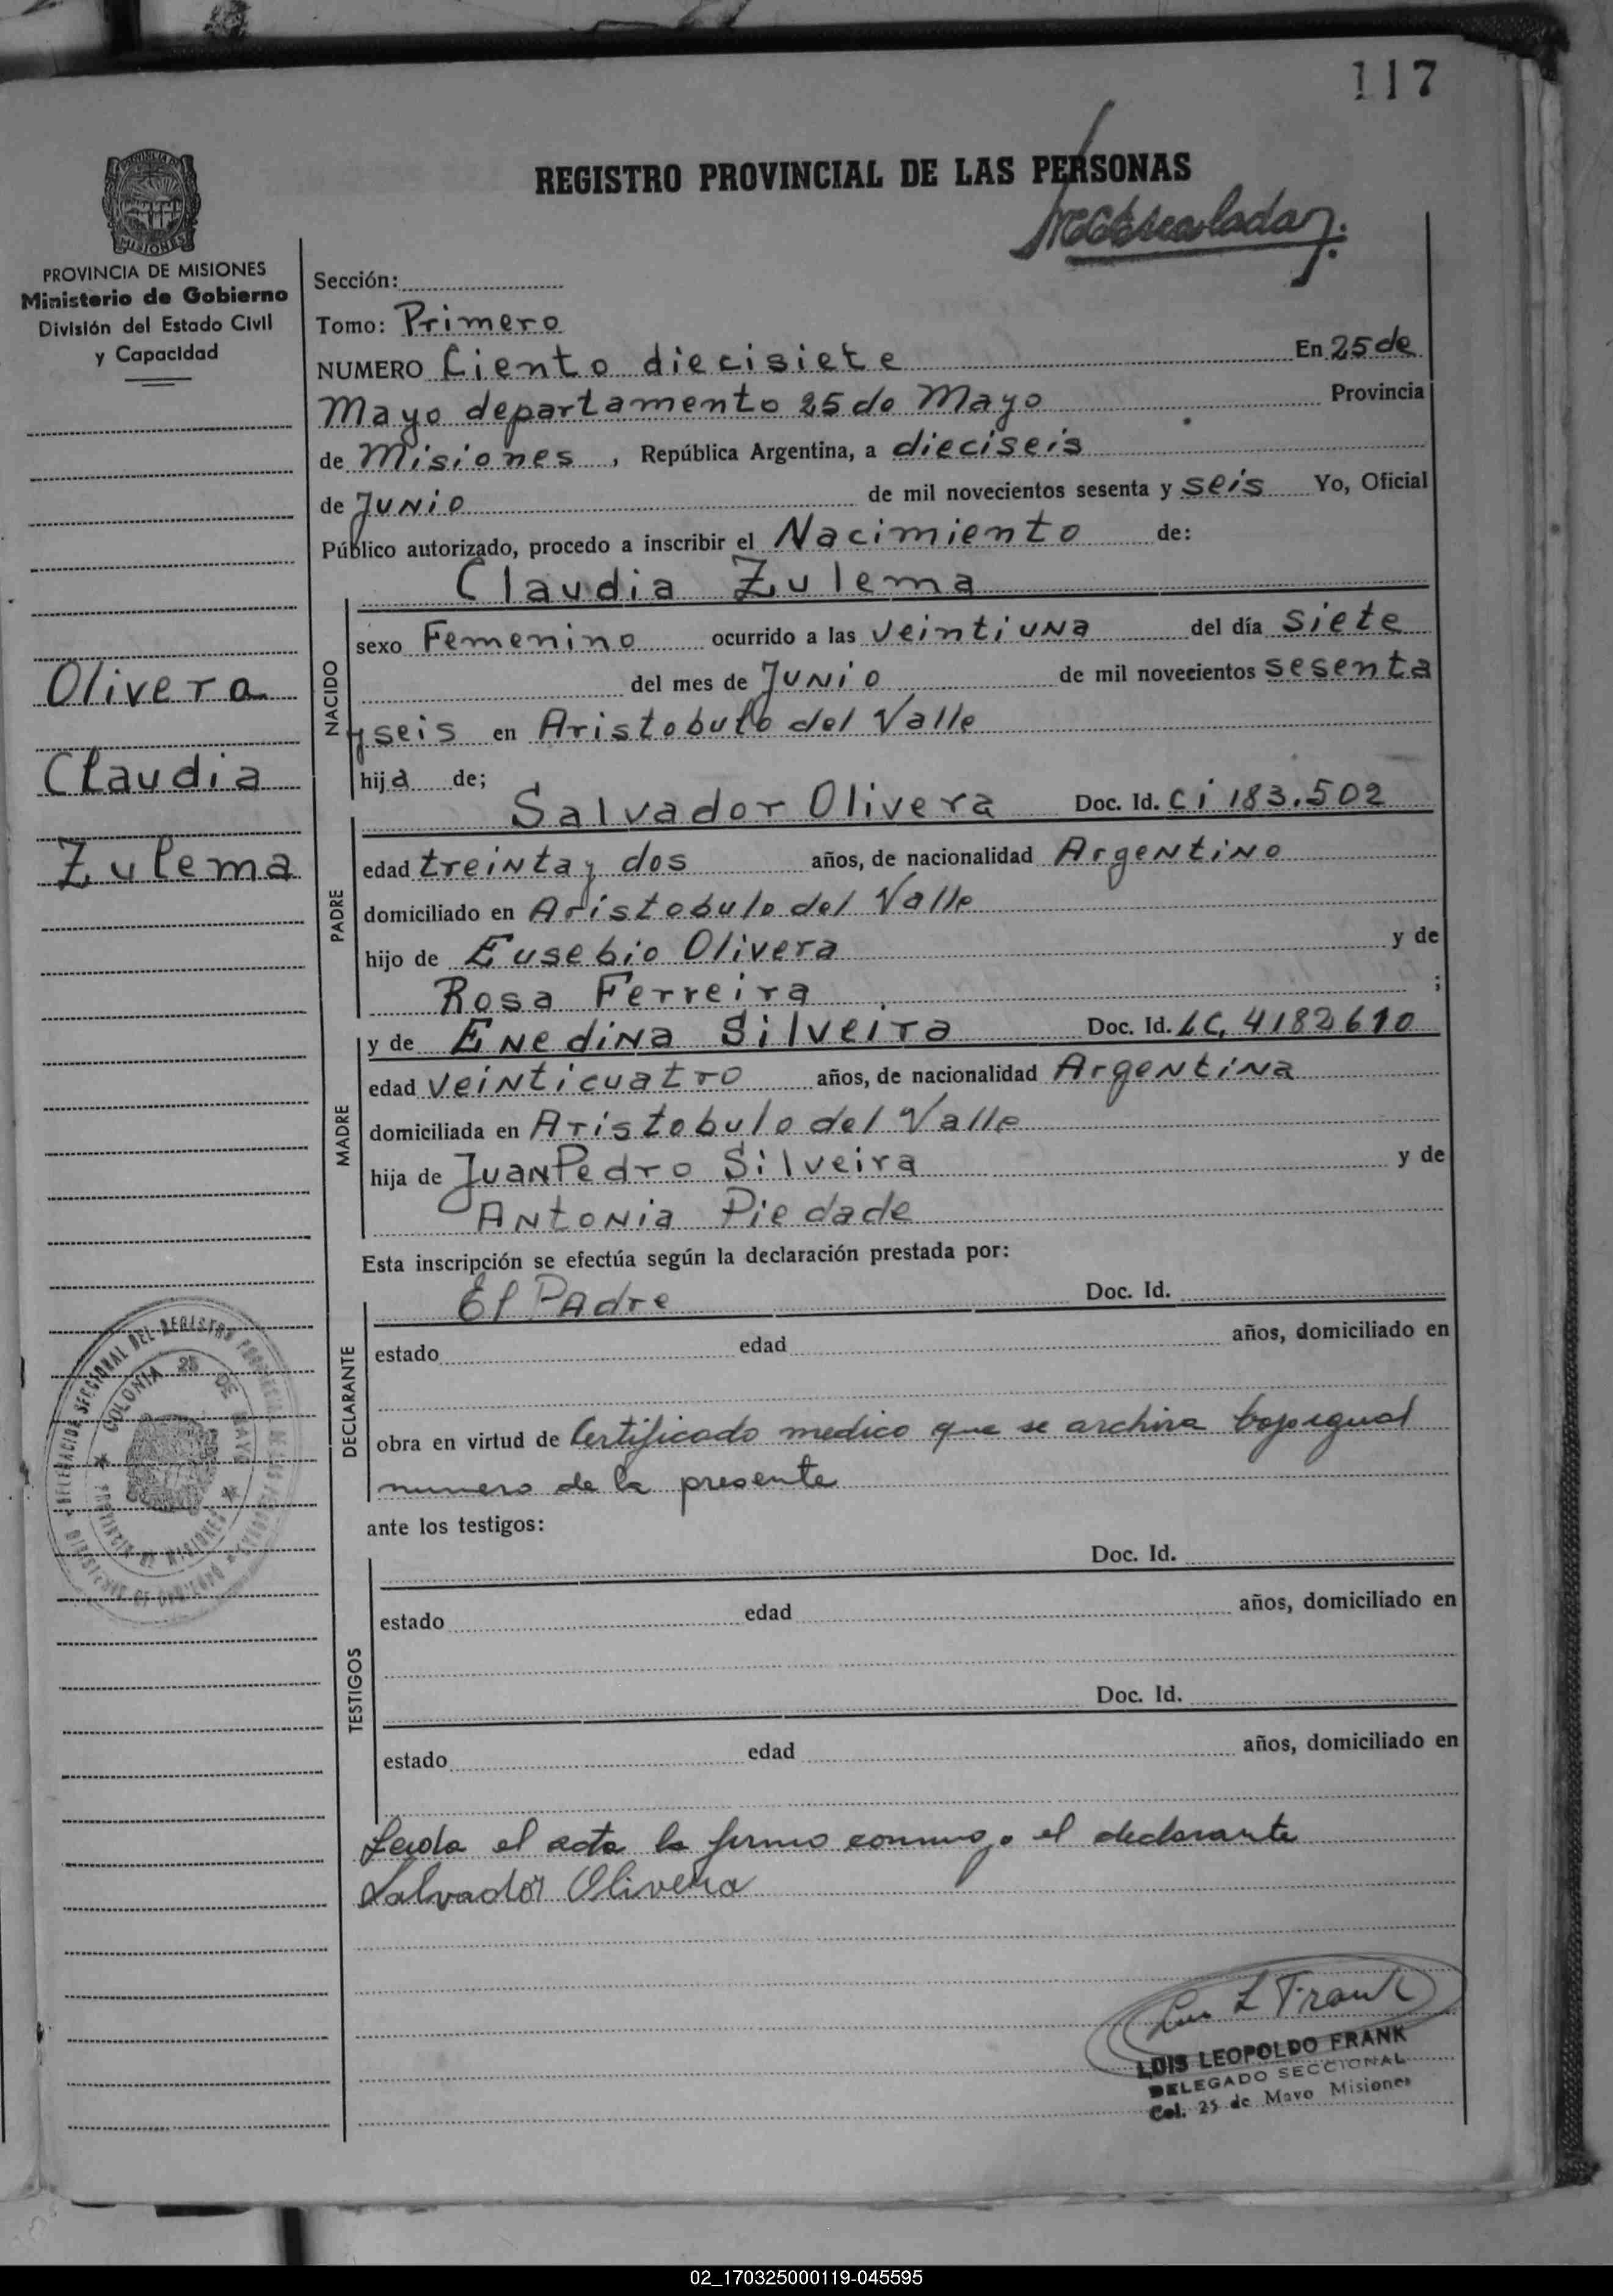 117
REGISTRO PROVINCIAL DE LAS PERSONAS
PROVINCIA DE MISIONES
Ministerio de Gobierno
División del Estado Civil
y Capacidad
Olivera
Claudia
Zulema
Sección:
Tomo: Primero
NUMERO Ciento diecisiete En 25 de
Mayo departamento 25 de Mayo Provincia
de Misiones, República Argentina, a dieciseis
de Junio de mil novecientos sesenta y seis Yo, Oficial
Público autorizado, procedo a inscribir el Nacimiento de:
Claudia Zulema
NACIDO
sexo Femenino ocurrido a las veintiuna del día siete
del mes de Junio de mil novecientos sesenta
y seis en Aristobulo del Valle
hija de;
Salvador Olivera Doc. Id. Ci 183.502
PADRE
edad treinta y dos años, de nacionalidad Argentino
domiciliado en Aristobulo del Valle
hijo de Eusebio Olivera y de
Rosa Ferreira ;
y de Enedina Silveira Doc. Id. LC, 4182610
MADRE
edad veinticuatro años, de nacionalidad Argentina
domiciliada en Aristobulo del Valle
hija de Juan Pedro Silveira y de
Antonia Piedade
Esta inscripción se efectúa según la declaración prestada por:
El Padre Doc. Id.
DECLARANTE
estado edad años, domiciliado en
obra en virtud de Certificado medico que se archiva bajo igual
numero de la presente
ante los testigos:
Doc. Id.
TESTIGOS
estado edad años, domiciliado en
Doc. Id.
estado edad años, domiciliado en
Leida el acta la firma conmigo el declarante
Salvador Olivera
DELEGACION SECCIONAL DEL REGISTRO
COLONIA 25 DE MAYO
PROVINCIA DE MISIONES
Luis L Frank
LUIS LEOPOLDO FRANK
DELEGADO SECCIONAL
Col. 25 de Mayo Misiones
02_170325000119-045595